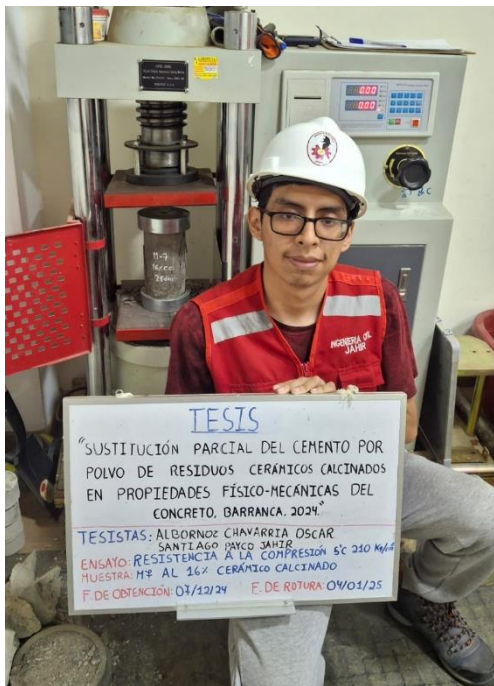 0.00
0.00
M-7
INGENIERIA CIVIL
JAHIR
TESIS
"SUSTITUCIÓN PARCIAL DEL CEMENTO POR
POLVO DE RESIDUOS CERÁMICOS CALCINADOS
EN PROPIEDADES FÍSICO-MECÁNICAS DEL
CONCRETO, BARRANCA. 2024."
TESISTAS: ALBORNOZ CHAVARRIA OSCAR
SANTIAGO PAYCO JAHIR
ENSAYO: RESISTENCIA A LA COMPRESIÓN f'c 210 Kg/cm²
MUESTRA: M7 AL 16% CERÁMICO CALCINADO
F. DE OBTENCIÓN: 07/12/24 F. DE ROTURA: 04/01/25